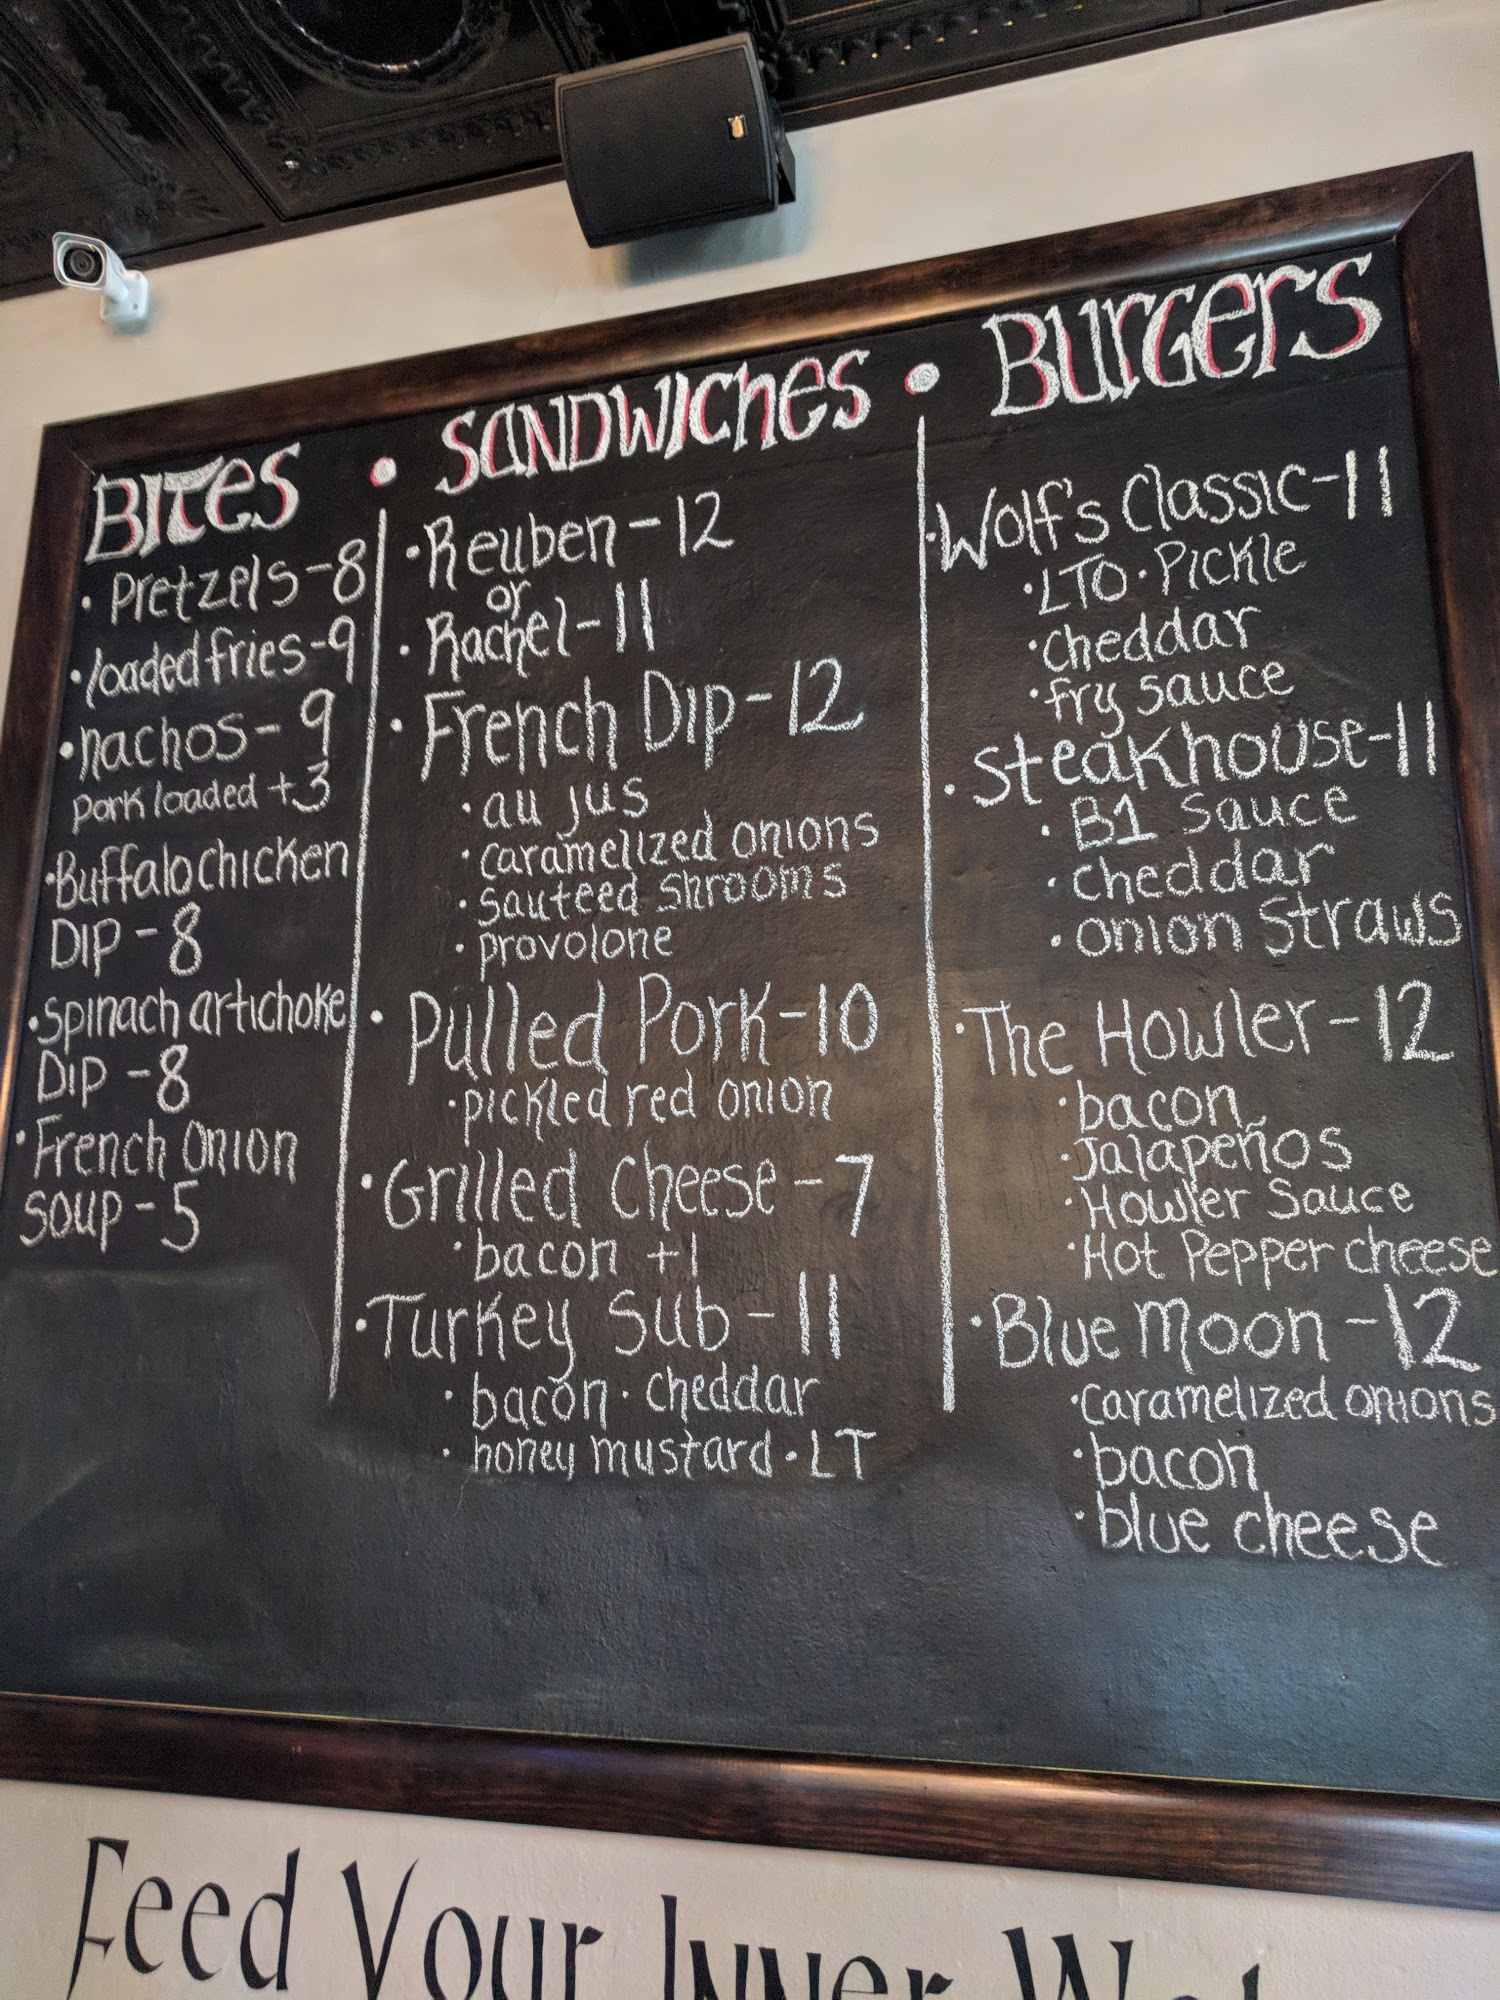 BITES • SANDWICHES • BURGERS
· Pretzels - 8
· loaded fries - 9
· nachos - 9
pork loaded +3
· Buffalo chicken
Dip - 8
· Spinach artichoke
Dip - 8
· French onion
soup - 5
· Reuben - 12
or
· Rachel - 11
· French Dip - 12
· au jus
· caramelized onions
· sauteed shrooms
· provolone
· Pulled Pork - 10
· pickled red onion
· Grilled Cheese - 7
· bacon +1
· Turkey Sub - 11
· bacon · cheddar
· honey mustard · LT
· Wolf's Classic - 11
· LTO · Pickle
· cheddar
· fry sauce
· Steakhouse - 11
· B1 Sauce
· cheddar
· onion straws
· The Howler - 12
· bacon
· Jalapeños
· Howler Sauce
· Hot Pepper cheese
· Blue Moon - 12
· caramelized onions
· bacon
· blue cheese
Feed Your Inner